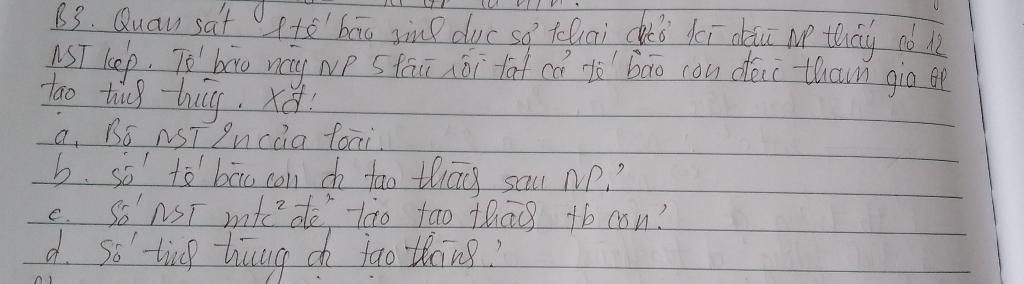 B3. Quan sát 1 tế bào sinh dục sơ khai ở kì đầu NP thấy có 12
NST kép. Tế bào này NP 5 lần rồi tất cả tế bào con đều tham gia GP
tạo tinh trùng. Xđ:
a, Bộ NST 2n của loài.
b. Số tế bào con đc tạo thành sau NP?
c. Số NST mtc² để tạo thành tb con?
d. Số tinh trùng đc tạo thành?